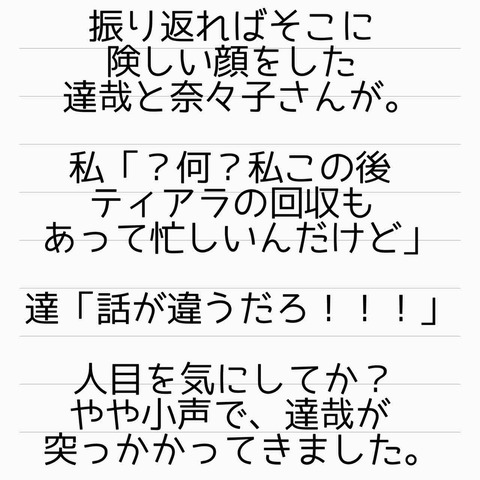 振り返ればそこに
険しい顔をした
達哉と奈々子さんが。
私「？何？私この後
ティアラの回収も
あって忙しいんだけど」
達「話が違うだろ！！！」
人目を気にしてか？
やや小声で、達哉が
突っかかってきました。